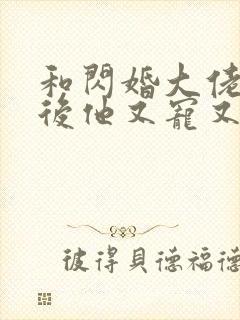 和閃婚大佬
後他又寵又
彼得貝德福德